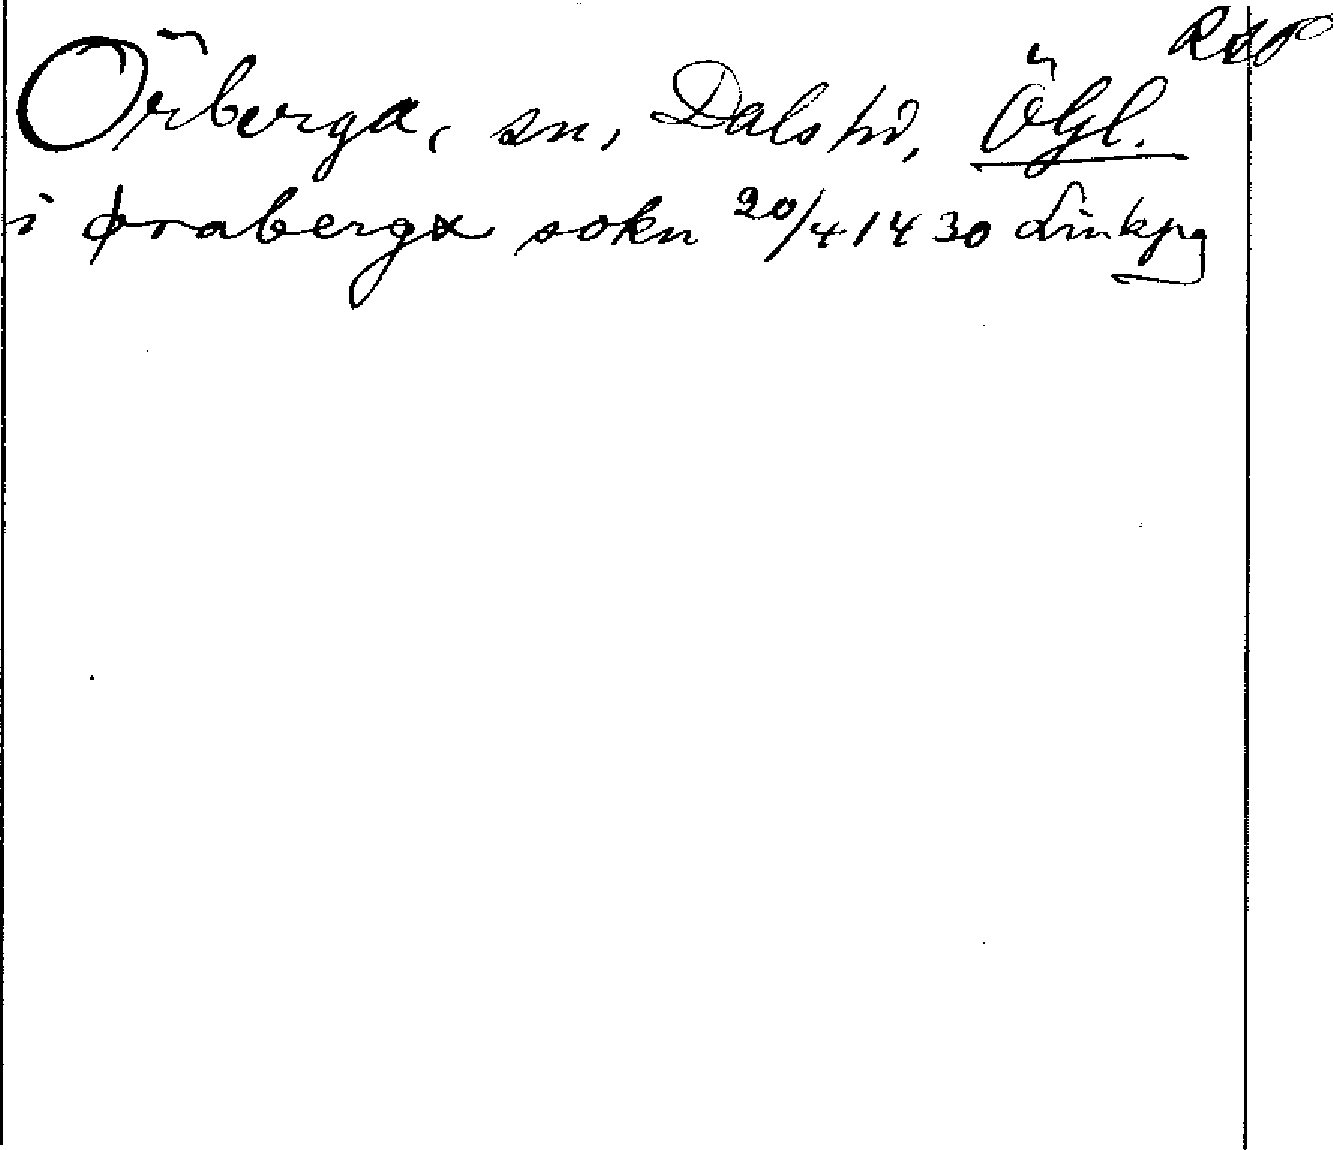 RAP
Örberga, sn, Dals hd, Ögl.
i ørabergæ sokn 20/4 1430 Linkpg